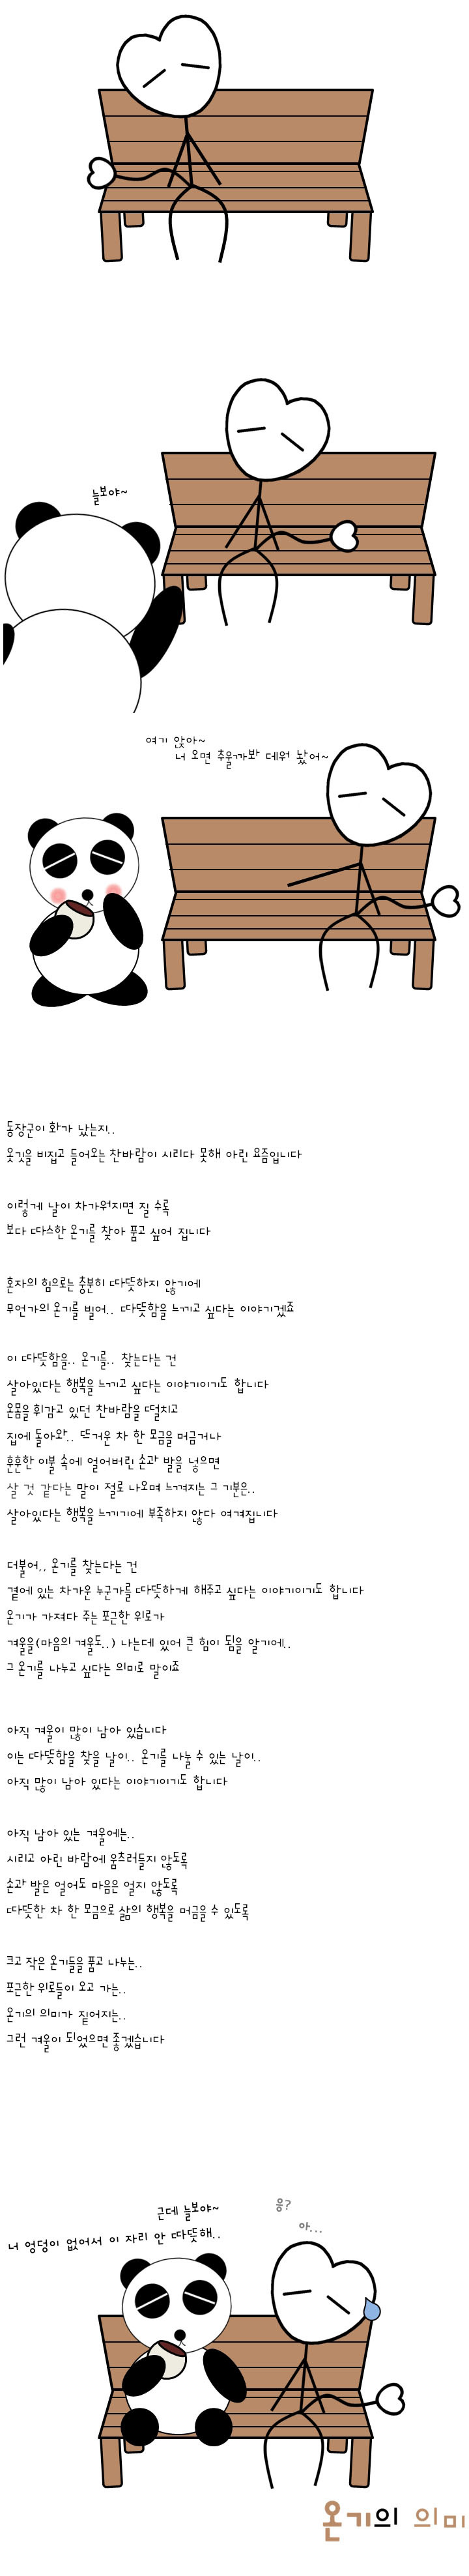 늘보야~
여기 앉아~
너 오면 추울까봐 데워 놨어~
동장군이 화가 났는지..
옷깃을 비집고 들어오는 찬바람이 시리다 못해 아린 요즘입니다
이렇게 날이 차가워지면 질 수록
보다 따스한 온기를 찾아 품고 싶어 집니다
혼자의 힘으로는 충분히 따뜻하지 않기에
무언가의 온기를 빌어.. 따뜻함을 느끼고 싶다는 이야기겠죠
이 따뜻함을.. 온기를.. 찾는다는 건
살아있다는 행복을 느끼고 싶다는 이야기이기도 합니다
온몸을 휘감고 있던 찬바람을 떨치고
집에 돌아와.. 뜨거운 차 한 모금을 머금거나
훈훈한 이불 속에 얼어버린 손과 발을 넣으면
살 것 같다는 말이 절로 나오며 느껴지는 그 기분은..
살아있다는 행복을 느끼기에 부족하지 않다 여겨집니다
더불어,, 온기를 찾는다는 건
곁에 있는 차가운 누군가를 따뜻하게 해주고 싶다는 이야기이기도 합니다
온기가 가져다 주는 포근한 위로가
겨울을(마음의 겨울도..) 나는데 있어 큰 힘이 됨을 알기에..
그 온기를 나누고 싶다는 의미로 말이죠
아직 겨울이 많이 남아 있습니다
이는 따뜻함을 찾을 날이.. 온기를 나눌 수 있는 날이..
아직 많이 남아 있다는 이야기이기도 합니다
아직 남아 있는 겨울에는..
시리고 아린 바람에 움츠러들지 않도록
손과 발은 얼어도 마음은 얼지 않도록
따뜻한 차 한 모금으로 삶의 행복을 머금을 수 있도록
크고 작은 온기들을 품고 나누는..
포근한 위로들이 오고 가는..
온기의 의미가 짙어지는..
그런 겨울이 되었으면 좋겠습니다
근데 늘보야~
너 엉덩이 없어서 이 자리 안 따뜻해..
응?
아...
온기의 의미